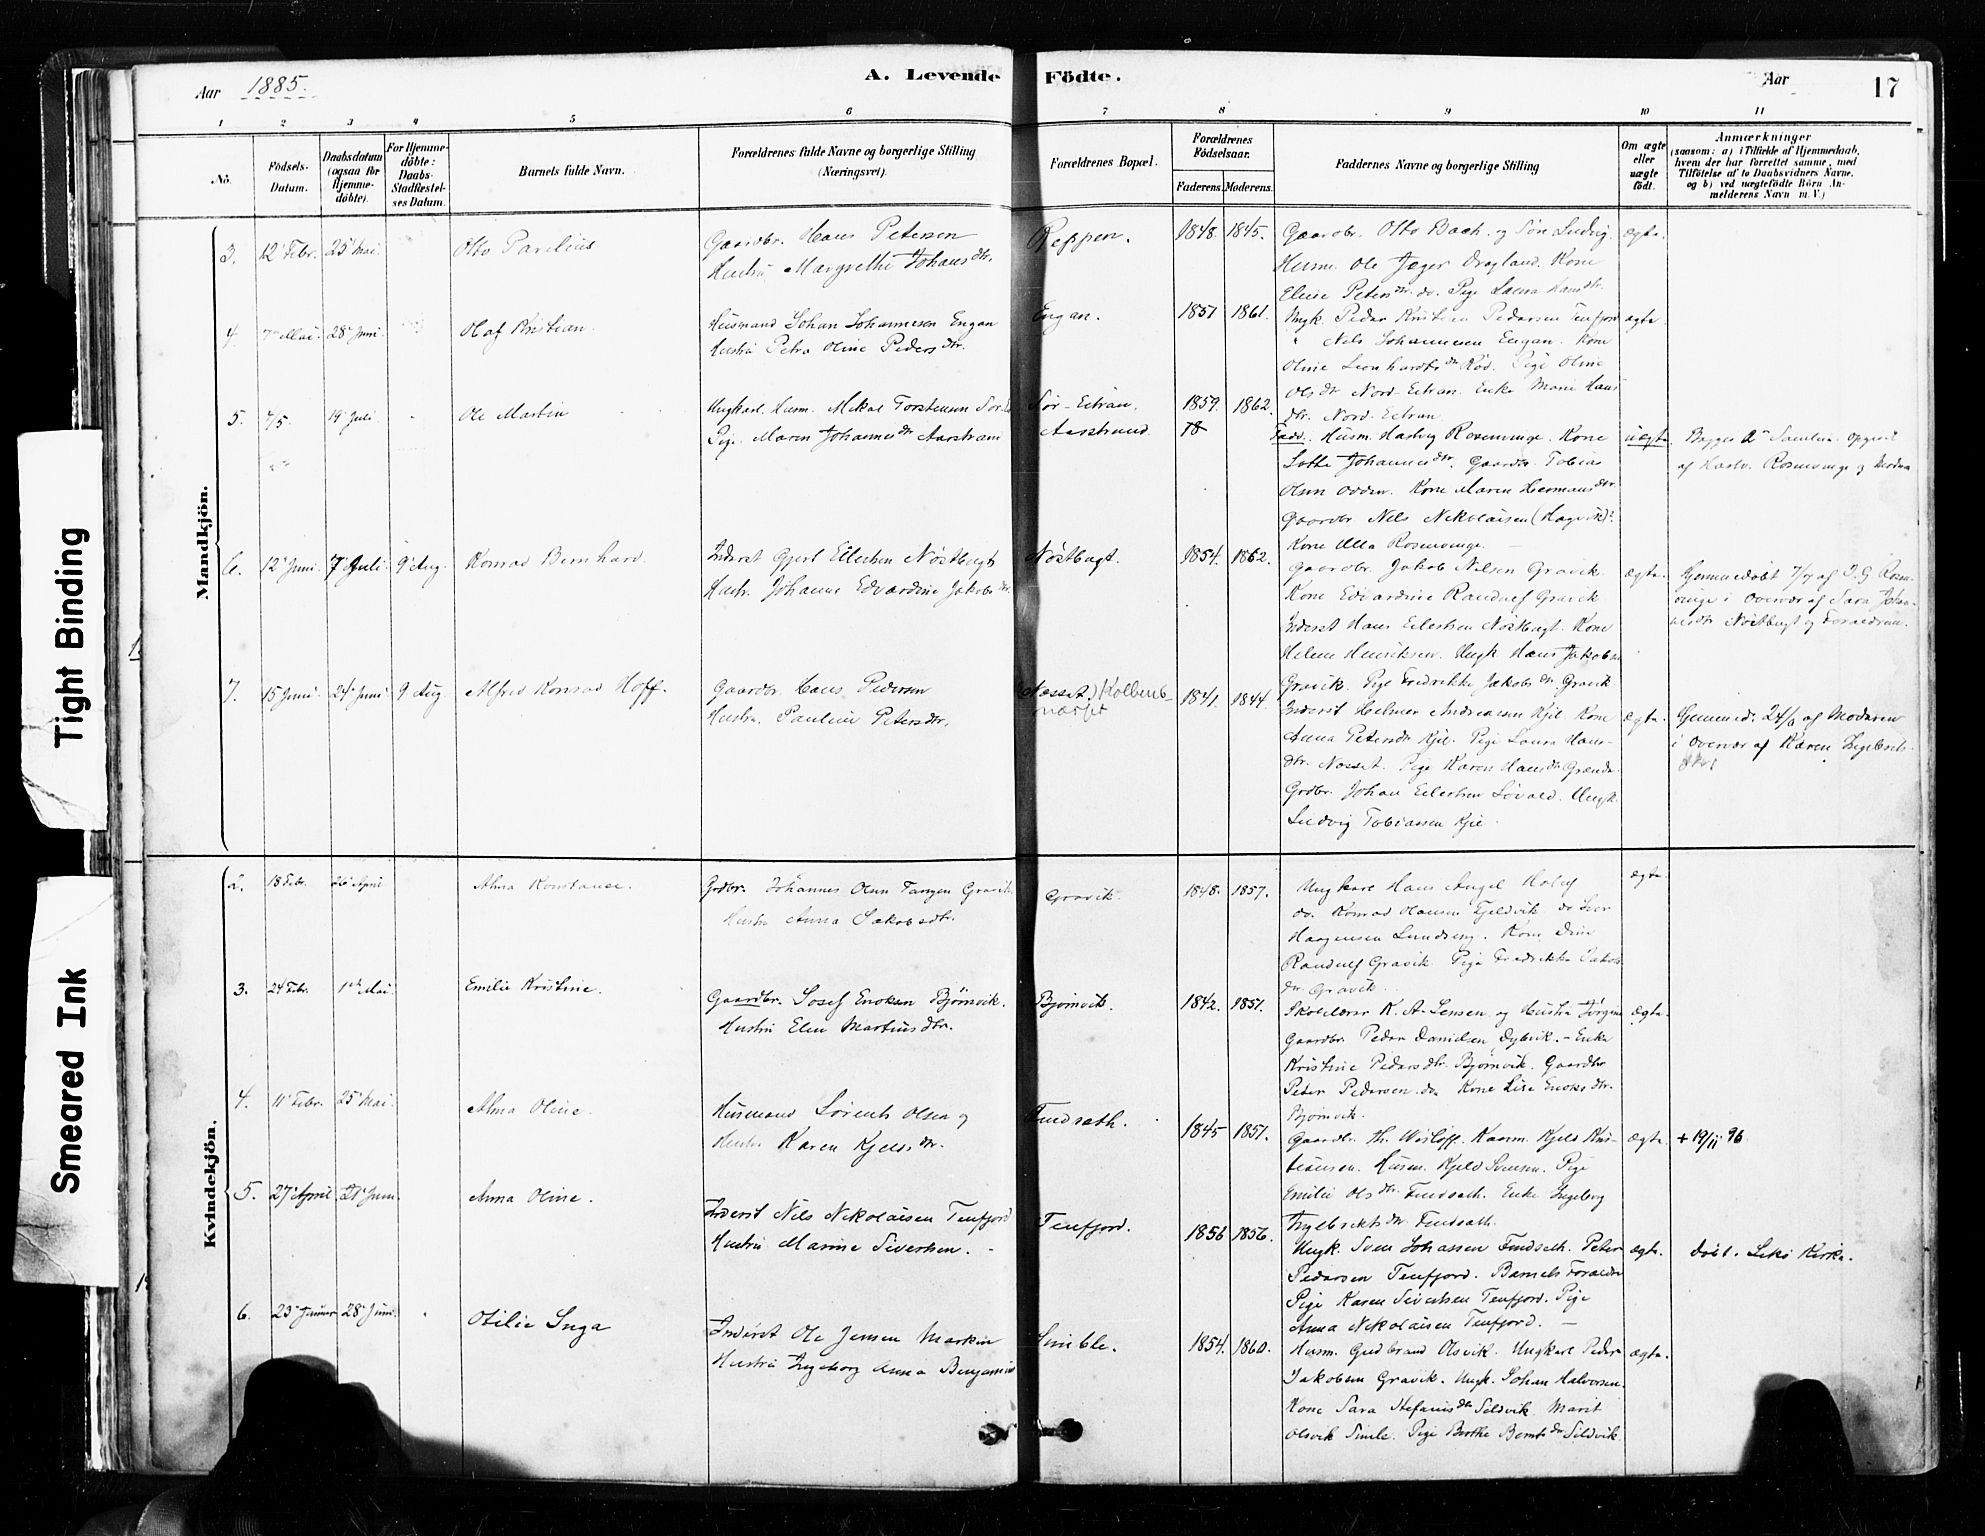 Tight Binding
Smeared Ink
Aar 1885.
A. Levende Födte.
Aar
17
1 2 3 4 5 6 7 8 9 10 11
No.
Födsels-Datum.
Daabsdatum (ogsaa for Hjemmedöbte).
For Hjemmedöbte: Daabs-Stadfæstelses Datum.
Barnets fulde Navn.
Forældrenes fulde Navne og borgerlige Stilling
(Næringsvei).
Forældrenes Bopæl.
Forældrenes Fødselsaar.
Faderens. Moderens.
Faddernes Navne og borgerlige Stilling
Om ægte eller uægte födt.
Anmærkninger
(saasom: a) i Tilfælde af Hjemmedaab,
hvem der har forrettet samme, med
Tilföielse af to Daabsvidners Navne,
og b) ved uægtefödte Börn An-
melderens Navn m. V.)
Mandkjön.
3. 12 Febr. 25 Mai. Otto Parelius
Gaardbr. Hans Petersen
Hustru Margrethe Johansdtr.
Reppen. 1848. 1845.
Gaardbr. Otto Bach og Søn Ludvig.
Husm. Ole Jæger Dragland. Kone
Elise Petersdtr. do. Pige Laura Hansdtr.
ægte.
4. 7 Mai. 28 Juni. Olaf Kristian.
Husmand Johan Johannesen Engan
Hustru Petra Oline Pedersdtr.
Engan. 1851 1861.
Ungk. Peder Kristian Pedersen Tenfjord
" Nils Johannesen Engan. Kone
Oline Leonhardtsdtr Rød. Pige Oline
Olsdtr Nord-Eitran. Enke Marie Hans
dtr. Nord-Eitran
ægte.
5. 7/5 19 Juli Ole Martin
Ungkarl Husm. Mikal Torstensen Sør-
Pige Maren Johannesdtr Aarstrand
Sør-Eitran. 1859. 1862.
Aarstrand. 18
Fadd. Husm. Hartvig Rosenvinge. Kone
Lotte Johannesdtr. Gaardbr. Tobias
Olsen Odden. Kone Maren Hermansdtr.
Gaardbr Nils Nikolaisen (Hagvik)?
Kone Rosenvinge.
uægte
Begges 2. Samleie. Opgivet
af Hartv. Rosenvinge og
6. 12 Juni. 7 Juli 9 Aug. Konrad Bernhard.
Inderst Gjert Ellertsen Nøstbugt
Hustr. Johanne Edvardine Jakobsdtr.
Nøstbugt. 1854. 1862.
Gaardbr. Jakob Nilsen Gravik.
Kone Edvardine Randulf Gravik
Inderst Hans Eilertsen Nøstbugt. Kone
Helene Henriksen. Ungk Hans Jakobsen
Gravik. Pige Fredrikke Jakobsdtr Gravik
ægte.
Hjemmedøbt 7/7 af J. G. Rosen-
vinge i Overvær af Sara Johan-
nesdtr Nøstbugt og Forældrene.
7. 15 Juni. 24 Juni 9 Aug. Alfred Konrad Hoff.
Gaardbr. Hans Pedersen
Hustru. Pauline Petersdtr.
(Næsset) Kolbens-
næsset 1841. 1844.
Inderst Helmer Andreasen Kjil. Kone
Anna Petersdtr Kjil. Pige Laura Hans-
dtr. Næsset. Pige Karen Hansdtr
Grdbr. Johan Eilertsen Søvald. Ungk.
Ludvig Tobiassen Kjil.
ægte.
Hjemmed. 24/6 af Moderen
i Overvær af Karen Ingebrets-
dtr.
Kvindekjön.
2. 18 Febr. 26 April Alma Konstanse.
Grdbr. Johannes Olsen Tangen Gravik
Hustru Anna Jakobsdtr.
Gravik. 1848. 1857.
Ungkarl Hans Angel
do. Konrad Hansen Fjeldvik. do Iver
Haagensen Lundseng. Kone Dina
Randulf Gravik. Pige Fredrikke Jakobs
dtr Gravik.
ægte
3. 24 Febr. 1 Mai. Emilie Kristine.
Gaardbr. Josef Enoksen Bjørnvik.
Hustru Elen Martinsdtr.
Bjørnvik. 1842. 1851.
Skolelærer K. A. Jensen og Hustru Jørgine
Gaardbr. Peder Danielsen Dybvik. - Enke
Kristine Pedersdtr. Bjørnvik. Gaardbr
Peter Pedersen. do. Kone Lise Enoksdtr.
Bjørnvik.
ægte.
4. 11 Febr. 25 Mai. Alma Oline.
Husmand Sørents Olsen og
Hustr. Karen Kjeldsdtr.
Findsæth. 1845 1851.
Gaardbr. Th. Wisløff. Kaarm. Kjeld Kris-
tiansen. Husm. Kjeld Svensen. Pige
Emilie Olsdtr. Findsæth. Enke Ingeborg
Ingebrektsdtr Findsæth.
ægte.
+ 19/11 96
5. 27 April 21 Juni. Anna Oline.
Inderst Nils Nikolaisen Tenfjord
Hustru Marine Sivertsen.
Tenfjord. 1856 1856.
Ungk. Sven Johansen Findsæth. Peter
Pedersen Tenfjord. Barnets Forældre
Pige Karen Sivertsen Tenfjord. Pige
Anna Nikolaisen Tenfjord.
ægte.
døbt. Lekø Kirke.
6. 23 Januar 28 Juni. Otilie Inga
Inderst Ole Jensen Marken
Hustru Ingeborg Anna Benjamins
Simble. 1854. 1860.
Husm. Gudbrand Olsvik. Ungkarl Peder
Jakobsen Gravik. Ungk. Johan Halvorsen.
Kone Sara Stefansdtr Sildvik. Marit
Olsvik Simle. Pige Berthe Berntsdtr Sildvik.
ægte.